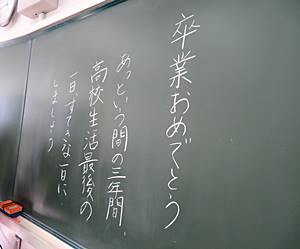 卒業おめでとう
あっという間の三年間、
高校生活最後の
一日、すてきな一日に
しましょう